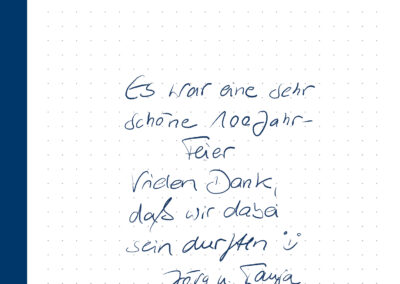 Es war eine sehr
schöne 100 Jahr-
Feier
Vielen Dank,
daß wir dabei
sein durften :)
Jörg u. Tanja